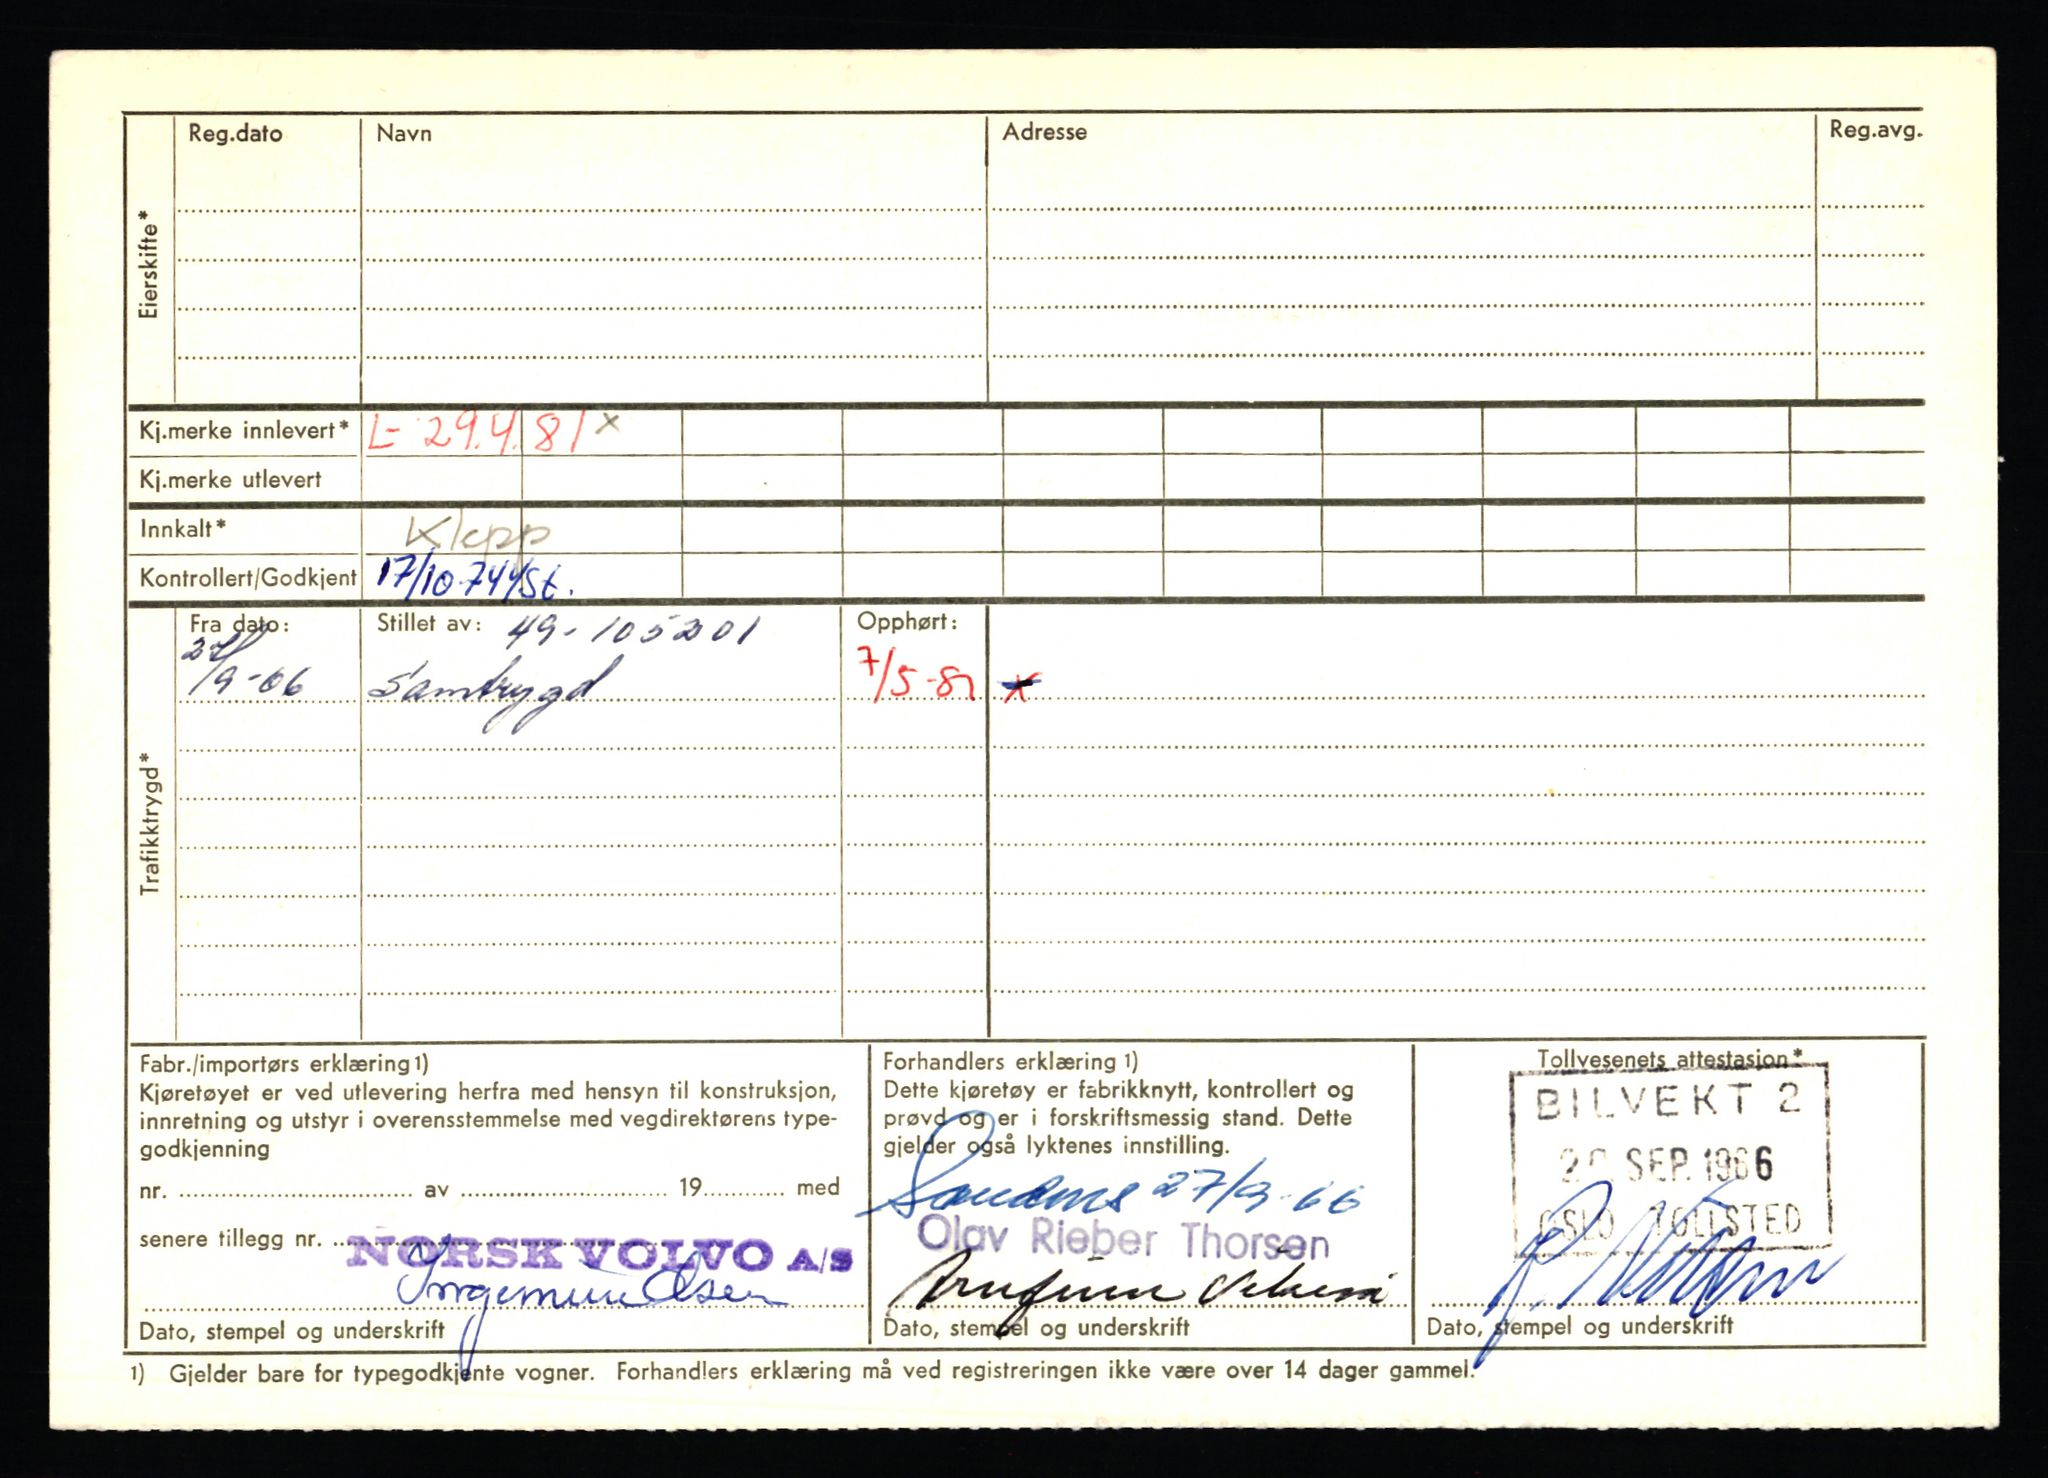 Eierskifte*
Reg.dato Navn Adresse Reg.avg.
Kj.merke innlevert* L- 29.4.81 x
Kj.merke utlevert
Innkalt* Klepp
Kontrollert/Godkjent 17/10-74/St.
Trafikktrygd*
Fra dato: Stillet av: 49-105201 Opphørt:
27/9-66 Samtrygd 7/5-81 x
Fabr./importørs erklæring 1)
Kjøretøyet er ved utlevering herfra med hensyn til konstruksjon,
innretning og utstyr i overensstemmelse med vegdirektørens type-
godkjenning
nr. av 19 med
senere tillegg nr.
NORSK VOLVO A/S
Ingemund Olsen
Dato, stempel og underskrift
Forhandlers erklæring 1)
Dette kjøretøy er fabrikknytt, kontrollert og
prøvd og er i forskriftsmessig stand. Dette
gjelder også lyktenes innstilling.
Sandnes 27/9-66
Olav Rieber Thorsen
Dato, stempel og underskrift
Tollvesenets attestasjon*
BILVEKT 2
SEP. 1966
OSLO TOLLSTED
Dato, stempel og underskrift
1) Gjelder bare for typegodkjente vogner. Forhandlers erklæring må ved registreringen ikke være over 14 dager gammel.